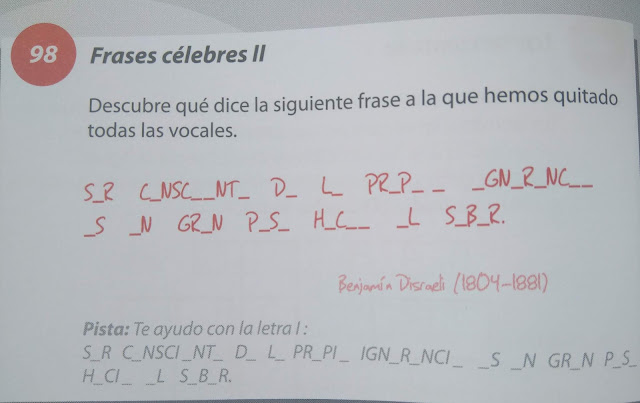 98 Frases célebres II
Descubre qué dice la siguiente frase a la que hemos quitado
todas las vocales.
S_R C_NSC__NT_ D_ L_ PR_P_ _ _GN_R_NC__
_S _N GR_N P_S_ H_C__ _L S_B_R.
Benjamín Disraeli (1804-1881)
Pista: Te ayudo con la letra I:
S_R C_NSCI_NT_ D_ L_ PR_PI_ IGN_R_NCI_ _S _N GR_N P_S_
H_CI_ _L S_B_R.